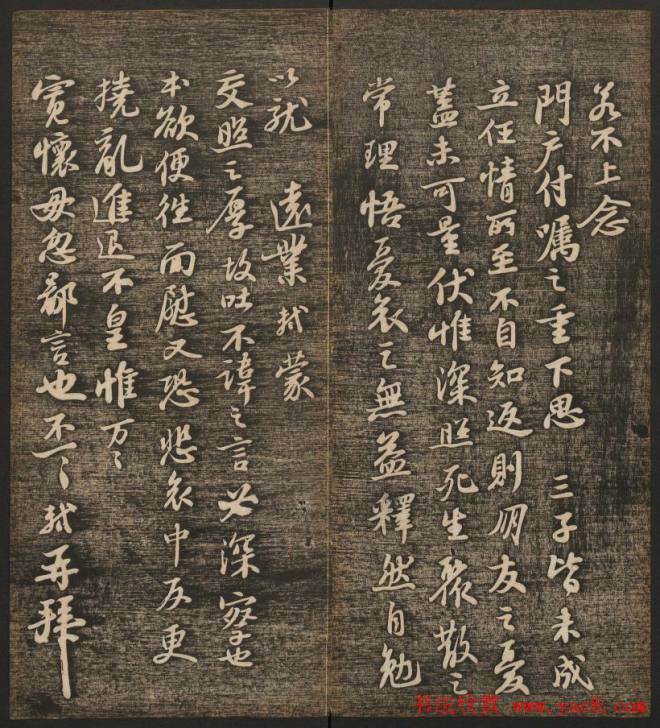 若不上念
門户付囑之重下思　三子皆未成
立任情所至不自知返則朋友之憂
蓋未可量伏惟深照死生聚散之
常理悟憂哀之無益釋然自勉
以就　遠業軾蒙
交照之厚故吐不諱之言必深察也
本欲便往面慰又恐悲哀中反更
撓亂進退不皇惟万万
寬懷毋忽鄙言也不一一軾再拜
书法欣赏 www.yac8.com